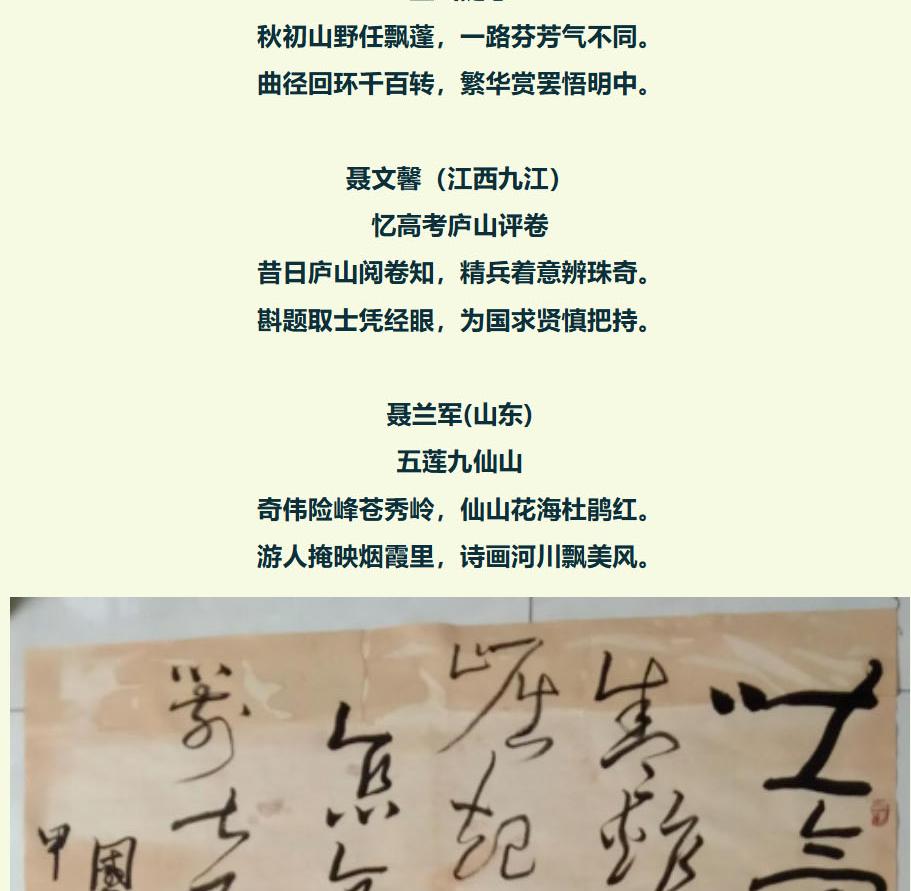 秋初山野任飘蓬，一路芬芳气不同。
曲径回环千百转，繁华赏罢悟明中。
聂文馨（江西九江）
忆高考庐山评卷
昔日庐山阅卷知，精兵着意辨珠奇。
斟题取士凭经眼，为国求贤慎把持。
聂兰军(山东)
五莲九仙山
奇伟险峰苍秀岭，仙山花海杜鹃红。
游人掩映烟霞里，诗画河川飘美风。
崛起
甲
国